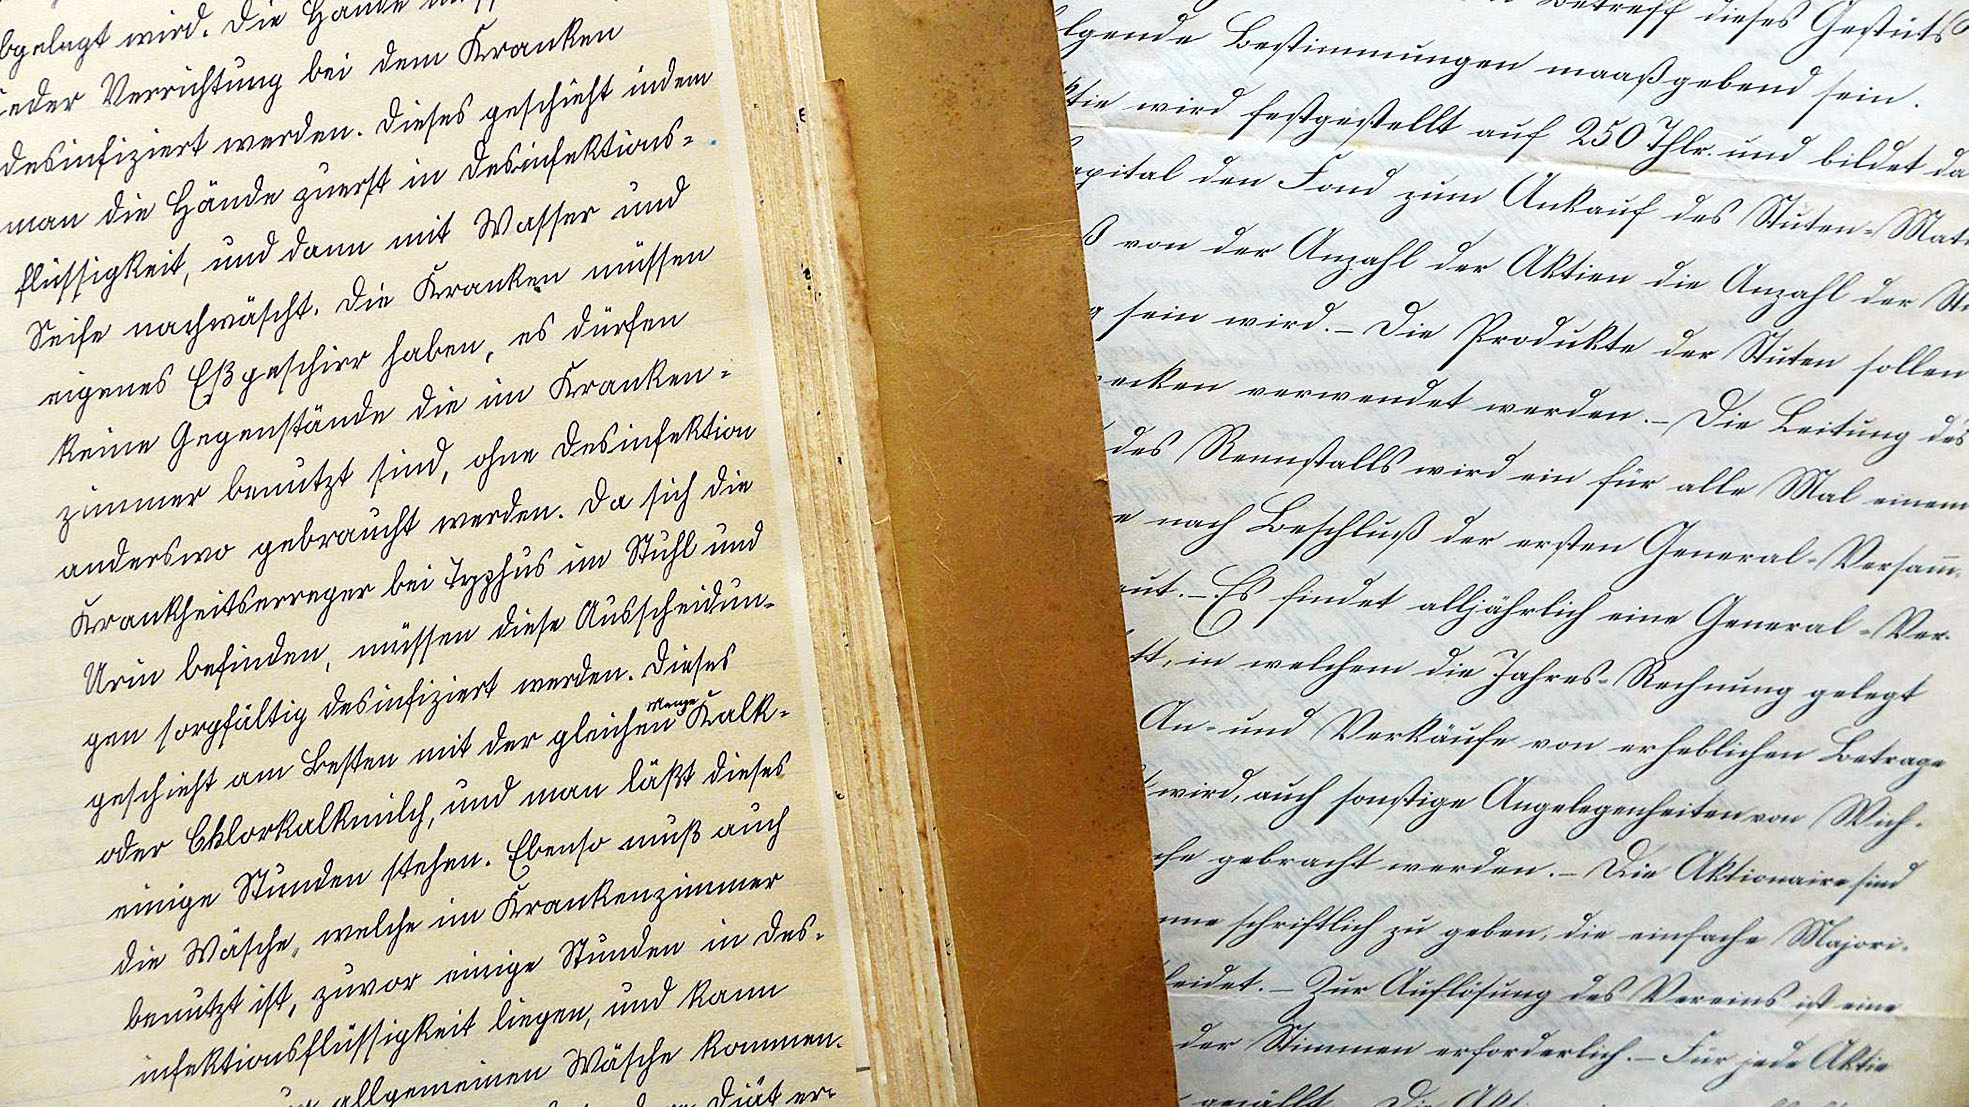 abgelagt wird. Die Hände
jeder Verrichtung bei dem Kranken
desinfiziert werden. Dieses geschieht indem
man die Hände zuerst in Desinfektions=
flüssigkeit, und dann mit Wasser und
Seife nachwäscht. Die Kranken müssen
eigenes Eßgeschirr haben, es dürfen
keine Gegenstände die im Kranken=
zimmer benützt sind, ohne Desinfektion
anderswo gebraucht werden. Da sich die
Krankheitserreger bei Typhus im Stuhl und
Urin befinden, müssen diese Ausscheidun=
gen sorgfältig desinfiziert werden. Dieses
geschieht am Besten mit der gleichen Menge Kalk=
oder Chlorkalkmilch, und man läßt dieses
einige Stunden stehen. Ebenso muß auch
die Wäsche, welche im Krankenzimmer
benutzt ist, zuvor einige Stunden in Des=
infektionsflüssigkeit liegen, und kann
allgemeinen Wäsche kommen.
Diät er=
Betreff dieses Gestüts
lgende Bestimmungen maaßgebend sein.
ktie wird festgestellt auf 250 Thlr. und bildet da
apital den Fond zum Ankauf des Stuten=Mat
ß von der Anzahl der Aktien die Anzahl der St
g sein wird.– Die Produkte der Stuten sollen
ecken verwendet werden.– Die Leitung des
des Rennstalls wird ein für alle Mal einem
e nach Beschluß der ersten General=Versam̅
aut.– Es findet alljährlich eine General=Ver=
tt, in welchem die Jahres=Rechnung gelegt
An= und Verkäufe von erheblichen Betrage
wird, auch sonstige Angelegenheiten von Wich=
che gebracht werden.– Die Aktionaire sind
me schriftlich zu geben, die einfache Majori=
eidet.– Zur Auflösung des Vereins ist eine
der Stimmen erforderlich.– Für jede Aktie
gezählt. Die Akt